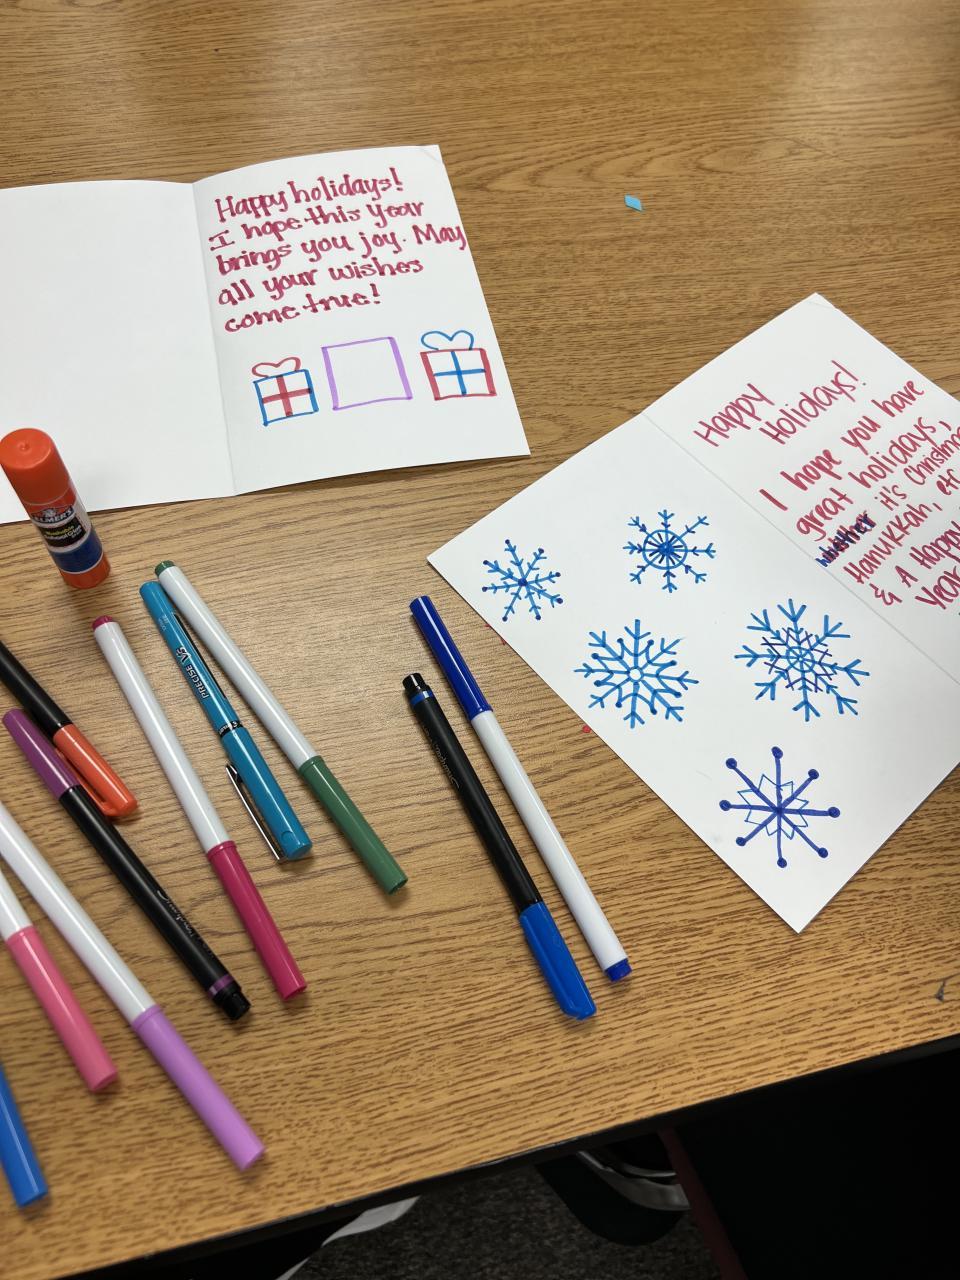 Happy holidays!
I hope this year
brings you joy. May
all your wishes
come true!
Happy
Holidays!
I hope you have
great holidays,
whether it's Christmas
Hanukkah, etc
& A Happy
Year
ELMER'S
PRECISE V5